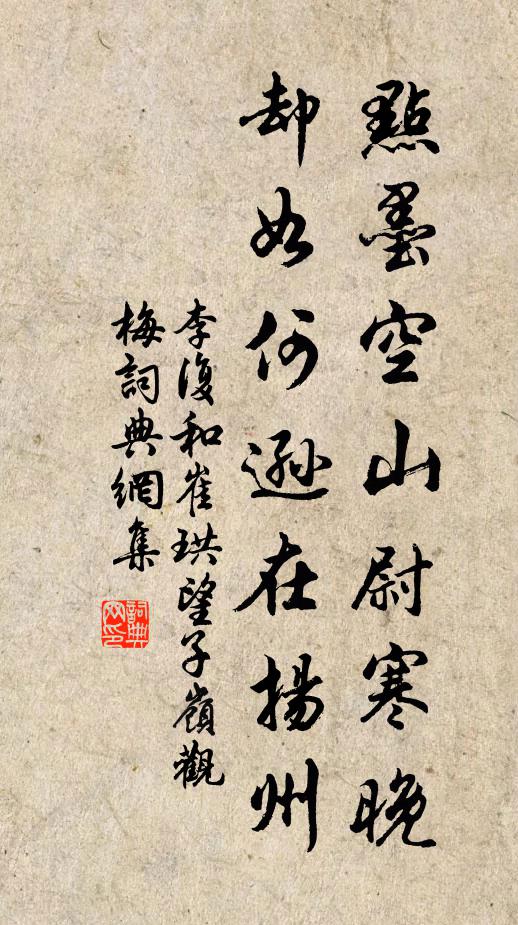 點墨空山尉寒晚
却如何遜在揚州
李復和崔珙望子嶺觀
梅詞典網集
詞典
网印